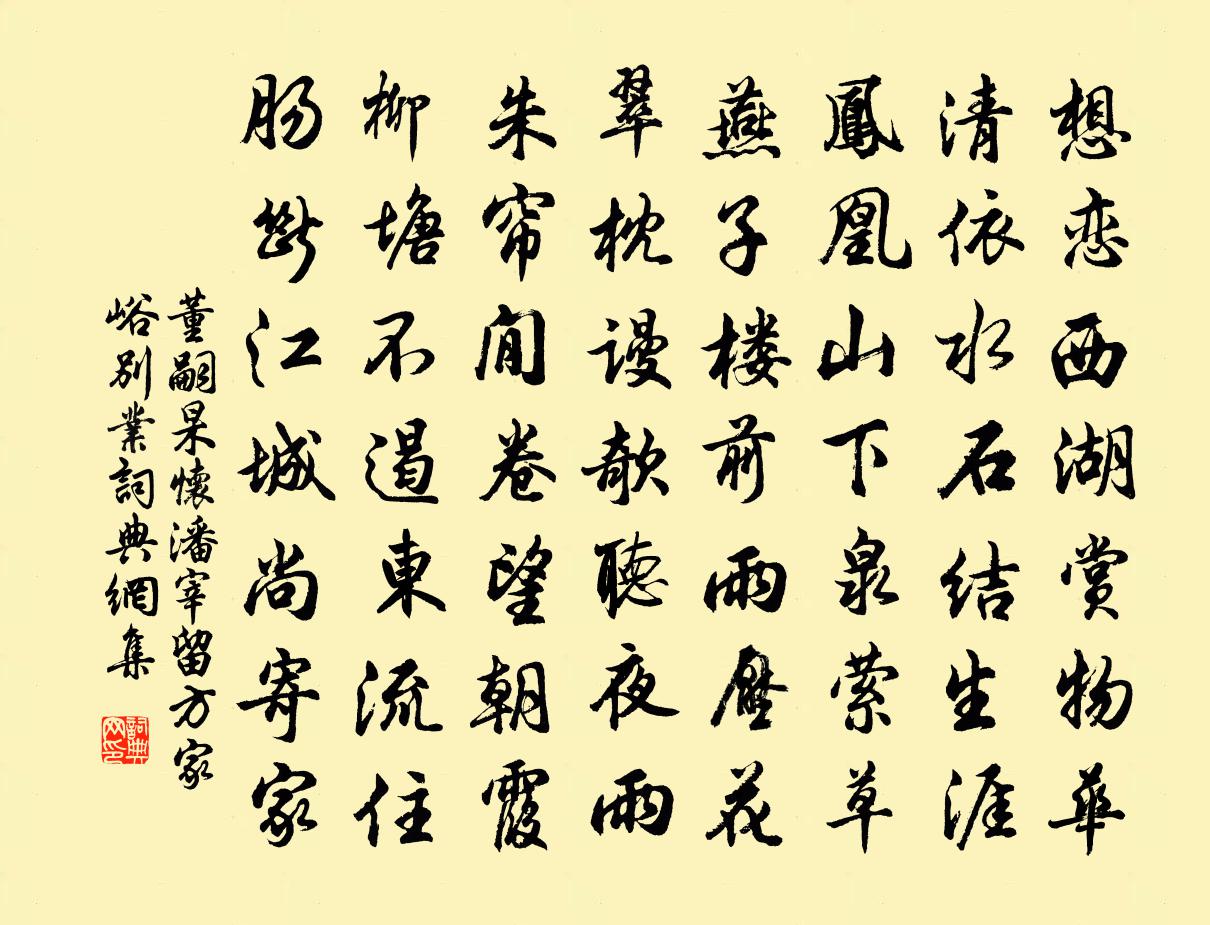 想恋西湖赏物华
清依水石结生涯
鳳凰山下泉萦草
燕子楼前雨压花
翠枕谩欹聽夜雨
朱帘閒卷望朝霞
柳塘不遏東流住
肠断江城尚寄家
董嗣杲懷潘宰留方家
峪别業詞典網集
詞典网印